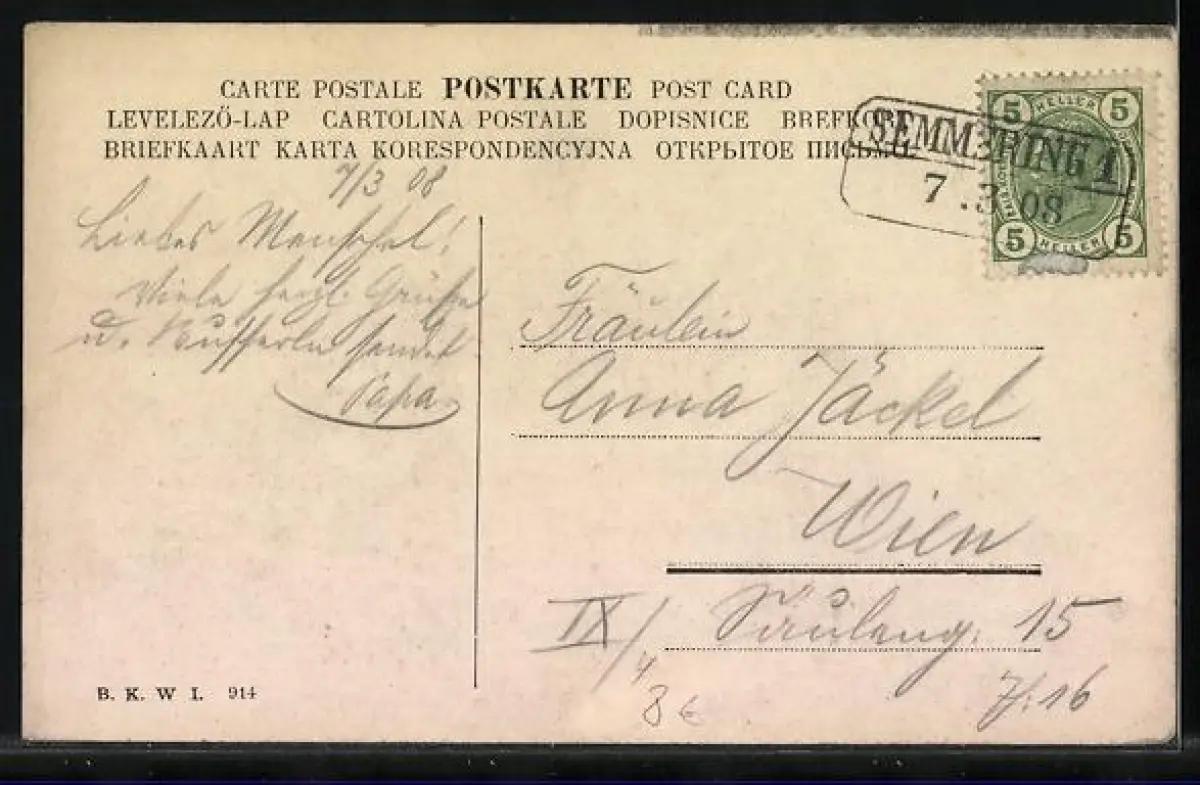 CARTE POSTALE POSTKARTE POST CARD
LEVELEZŐ-LAP CARTOLINA POSTALE DOPISNICE BREFKORT
BRIEFKAART KARTA KORESPONDENCYJNA ОТКРЫТОЕ ПИСЬМО
SEMMERING 1
7.3.08
5 HELLER 5
5 HELLER 5
7/3 08
Liebes
Viele herzl. Grüße
u. Busserln sendet
Papa
Fräulein
Anna Jäckel
Wien
IX/4
Säuleng. 15
8€
B. K. W I. 914